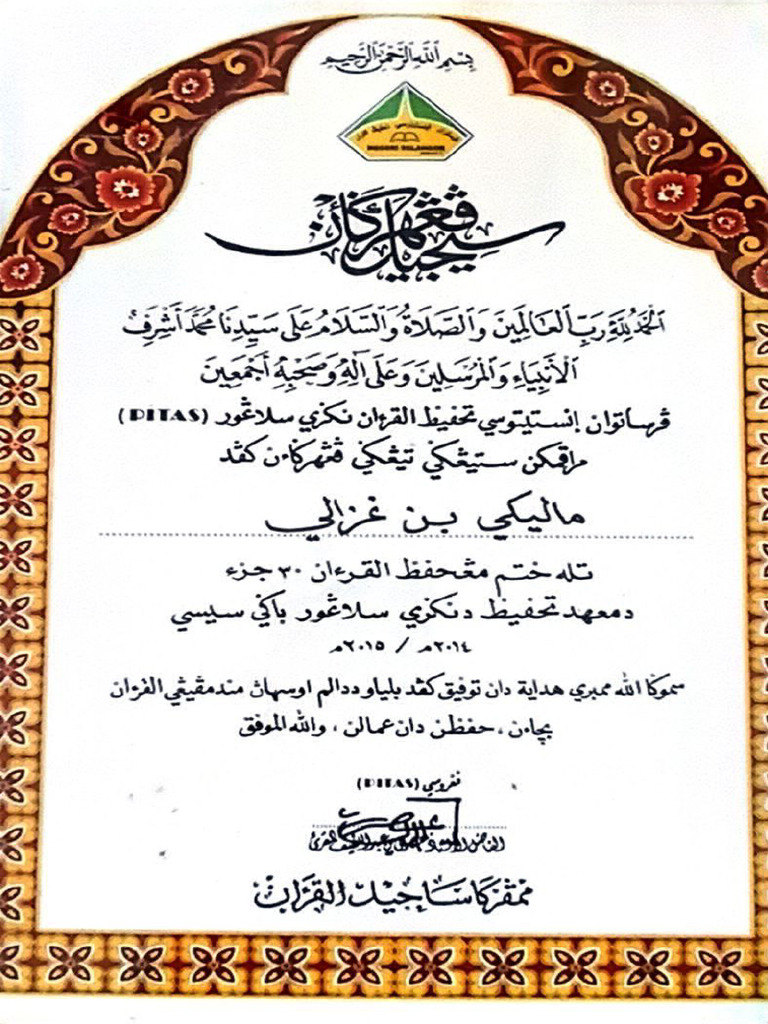 بِسْمِ اللَّهِ الرَّحْمٰنِ الرَّحِيمِ
NEGERI SELANGOR
سيجيل ڤڠهرڬأن
اَلْحَمْدُ لِلَّهِ رَبِّ الْعَالَمِينَ وَالصَّلَاةُ وَالسَّلَامُ عَلَى سَيِّدِنَا مُحَمَّدٍ أَشْرَفِ
الْأَنْبِيَاءِ وَالْمُرْسَلِينَ وَعَلَى آلِهِ وَصَحْبِهِ أَجْمَعِينَ
ڤرساتوان إنستيتوسي تحفيظ القرءان نڬري سلاڠور (PITAS)
مراقمكن ستيڠڬي تيڠڬي ڤڠهرڬاءن كڤد
ماليكي بن غزالي
تله ختم مڠحفظ القرءان ٣٠ جزء
دمعهد تحفيظ دنڬري سلاڠور باڬي سيسي
٢٠١٤م / ٢٠١٥م
سموڬا الله ممبري هداية دان توفيق كڤد بلياو ددالم اوسهاڽ مندمڤيڠي القرءان
بچاءن، حفظن دان عمالن، والله الموفق
ڤڠروسي (PITAS)
ممڤركاساجيل القرءان